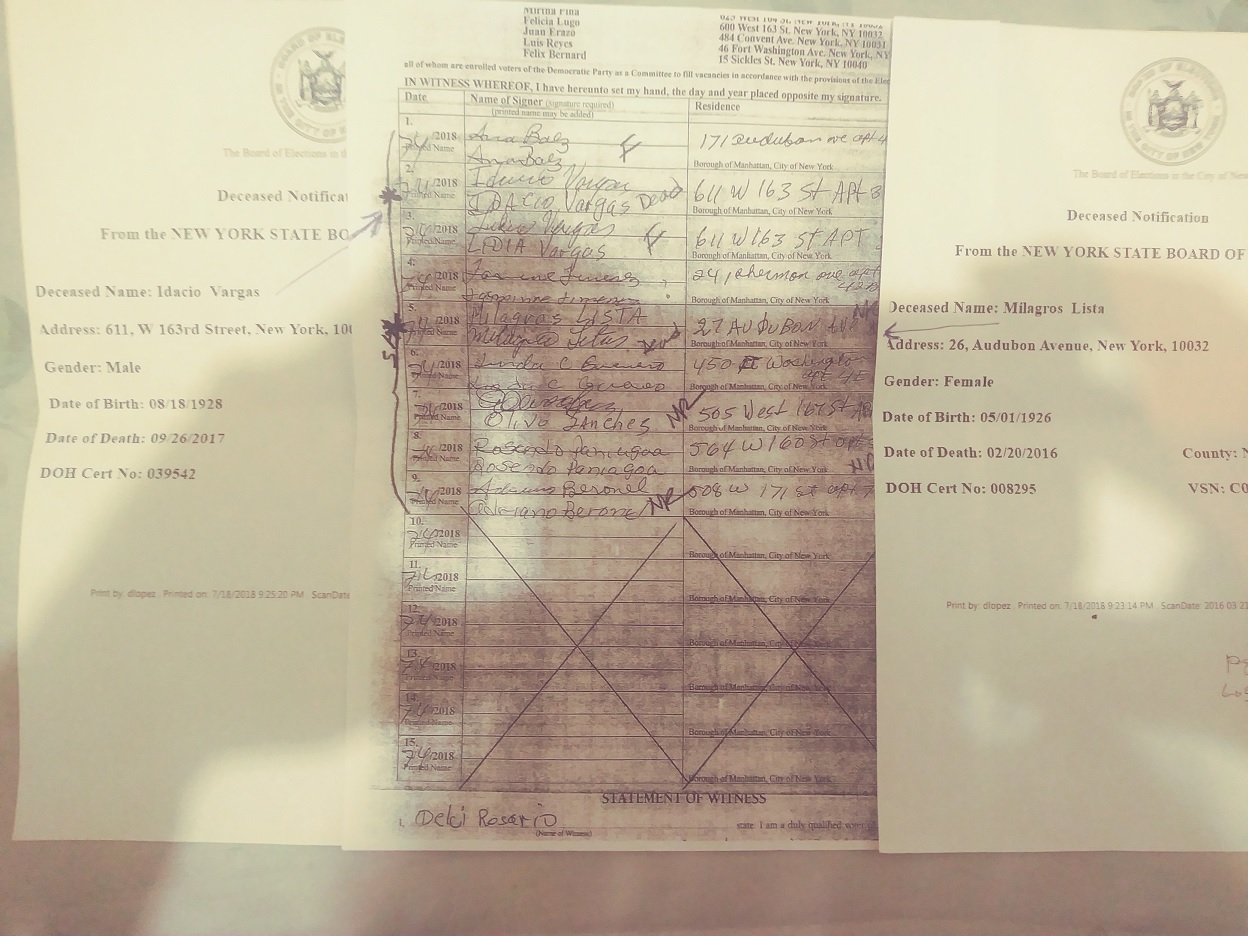 BOARD OF ELE
THE CITY OF
The Board of Elections in th
Deceased Notificat
From the NEW YORK STATE BO
Deceased Name: Idacio Vargas
Address: 611, W 163rd Street, New York, 100
Gender: Male
Date of Birth: 08/18/1928
Date of Death: 09/26/2017
DOH Cert No: 039542
Print by: dlopez Printed on: 7/18/2018 9:25:20 PM ScanDate
Mirtha Pina
Felicia Lugo
Juan Erazo
Luis Reyes
Felix Bernard
600 West 163 St. New York, NY 10032
484 Convent Ave. New York, NY 10031
46 Fort Washington Ave. New York, NY
15 Sickles St. New York, NY 10040
all of whom are enrolled voters of the Democratic Party as a Committee to fill vacancies in accordance with the provisions of the Elec
IN WITNESS WHEREOF, I have hereunto set my hand, the day and year placed opposite my signature.
Date Name of Signer (signature required) Residence
(printed name may be added)
1.
/2018 Ana Baez 171 Audubon ave apt 4
Printed Name Ana Baez Borough of Manhattan, City of New York
2.
/2018 Idacio Vargas 611 W 163 St APT B
Printed Name IDACIO Vargas Dead Borough of Manhattan, City of New York
3.
/2018 Lidia Vargas 611 W 163 St APT
Printed Name LIDIA Vargas Borough of Manhattan, City of New York
4.
/2018 241 Shermon ave apt
Printed Name Borough of Manhattan, City of New York
5.
/2018 Milagros LISTA 27 AUDUBON AVE NR
Printed Name Borough of Manhattan, City of New York
6.
/2018 C Guerrero 450 Ft Washington
Printed Name C Guerrero Borough of Manhattan, City of New York
7.
/2018 505 West 167 St
Printed Name Olivo Sanches NR Borough of Manhattan, City of New York
8.
/2018 Rosendo Paniagoa 564 W 160 St apt
Printed Name Rosendo Paniagoa NR Borough of Manhattan, City of New York
9.
/2018 Beronel 508 W 171 St apt 7
Printed Name NR Borough of Manhattan, City of New York
10.
/2018
Printed Name Borough of Manhattan, City of New York
11.
/2018
Printed Name Borough of Manhattan, City of New York
12.
/2018
Printed Name Borough of Manhattan, City of New York
13.
/2018
Printed Name Borough of Manhattan, City of New York
14.
/2018
Printed Name Borough of Manhattan, City of New York
15.
/2018
Printed Name Borough of Manhattan, City of New York
STATEMENT OF WITNESS
I, Delci Rosario state: I am a duly qualified voter
(Name of Witness)
The Board of Elections in the City of New
Deceased Notification
From the NEW YORK STATE BOARD OF
Deceased Name: Milagros Lista
Address: 26, Audubon Avenue, New York, 10032
Gender: Female
Date of Birth: 05/01/1926
Date of Death: 02/20/2016 County: N
DOH Cert No: 008295 VSN: C0
Print by: dlopez Printed on: 7/18/2018 9:23:14 PM ScanDate: 2016 03 21